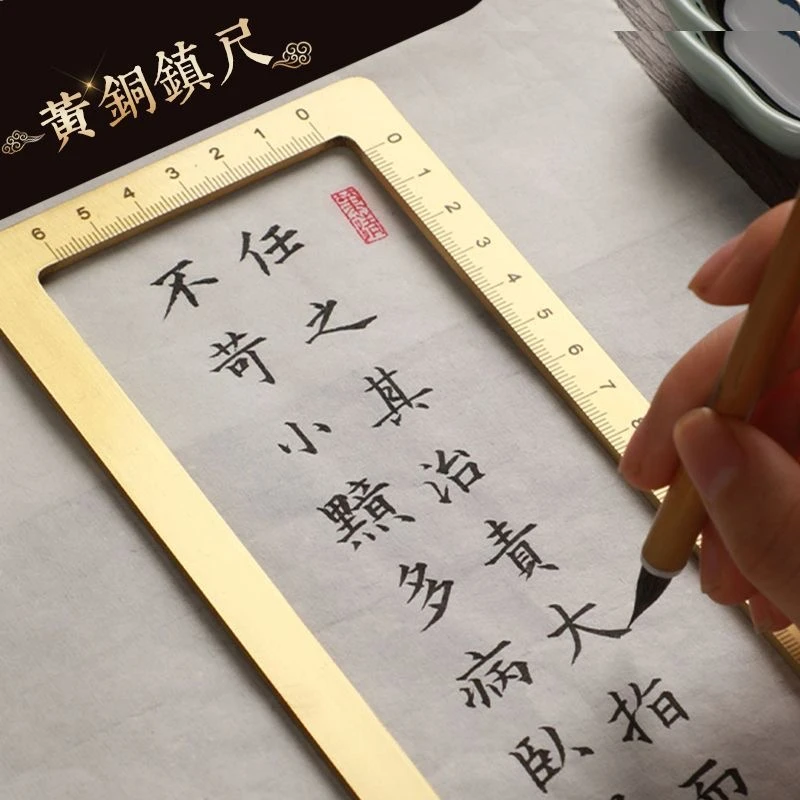 黄銅鎮尺
6 5 4 3 2 1 0
0 1 2 3 4 5 6 7 8
任之其治責大指而
不苛小黯多病臥